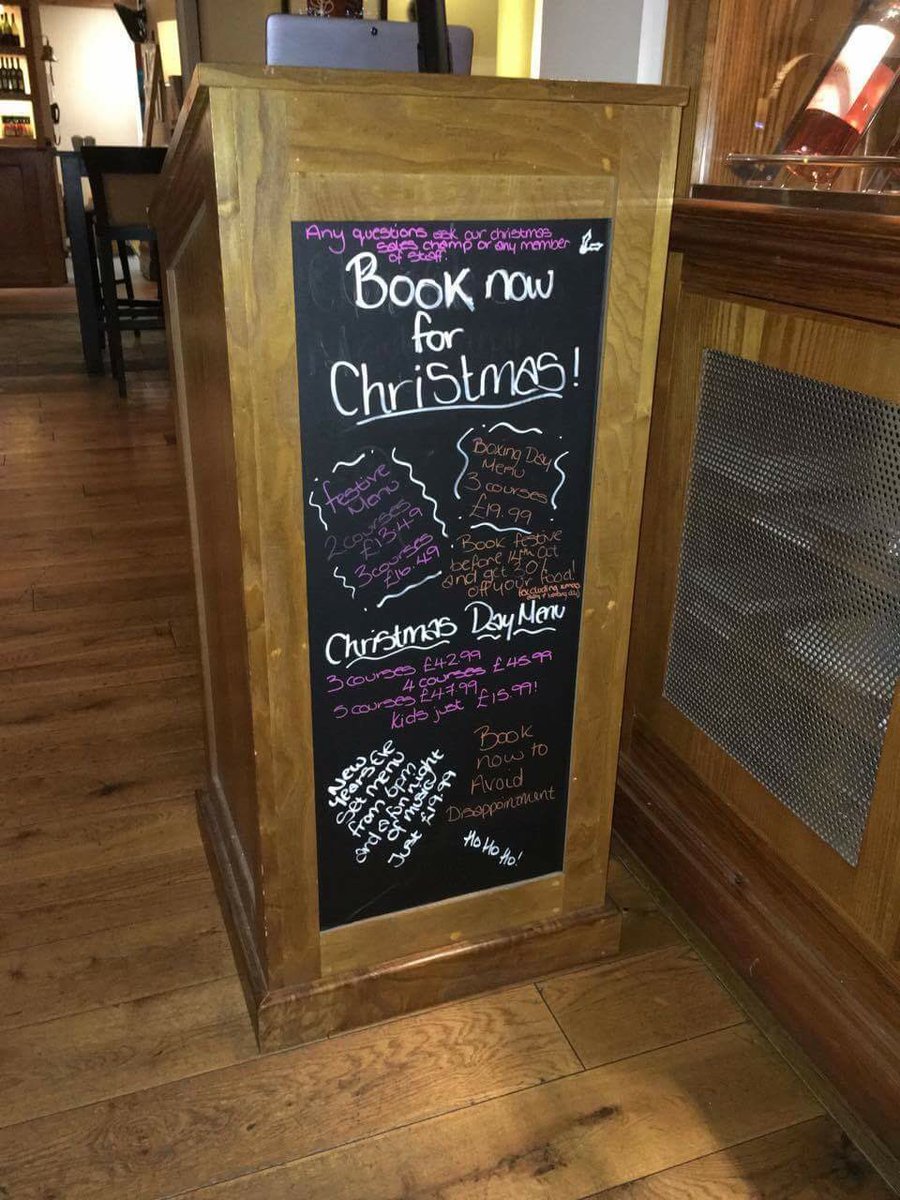 Any questions ask our christmas
sales champ or any member
of staff.
Book now
for
Christmas!
festive
Menu
2 courses
£13.49
3 courses
£16.49
Boxing Day
Menu
3 courses
£19.99
Book festive
before 14th Oct
and get 20%
off your food!
(excluding xmas
day & boxing day)
Christmas Day Menu
3 courses £42.99
4 courses £45.99
5 courses £47.99
kids just £15.99!
New
Years Eve
Set menu
from 6pm
and a fun night
of music
Just £19.99
Book
now to
Avoid
Disappointment
Ho Ho Ho!